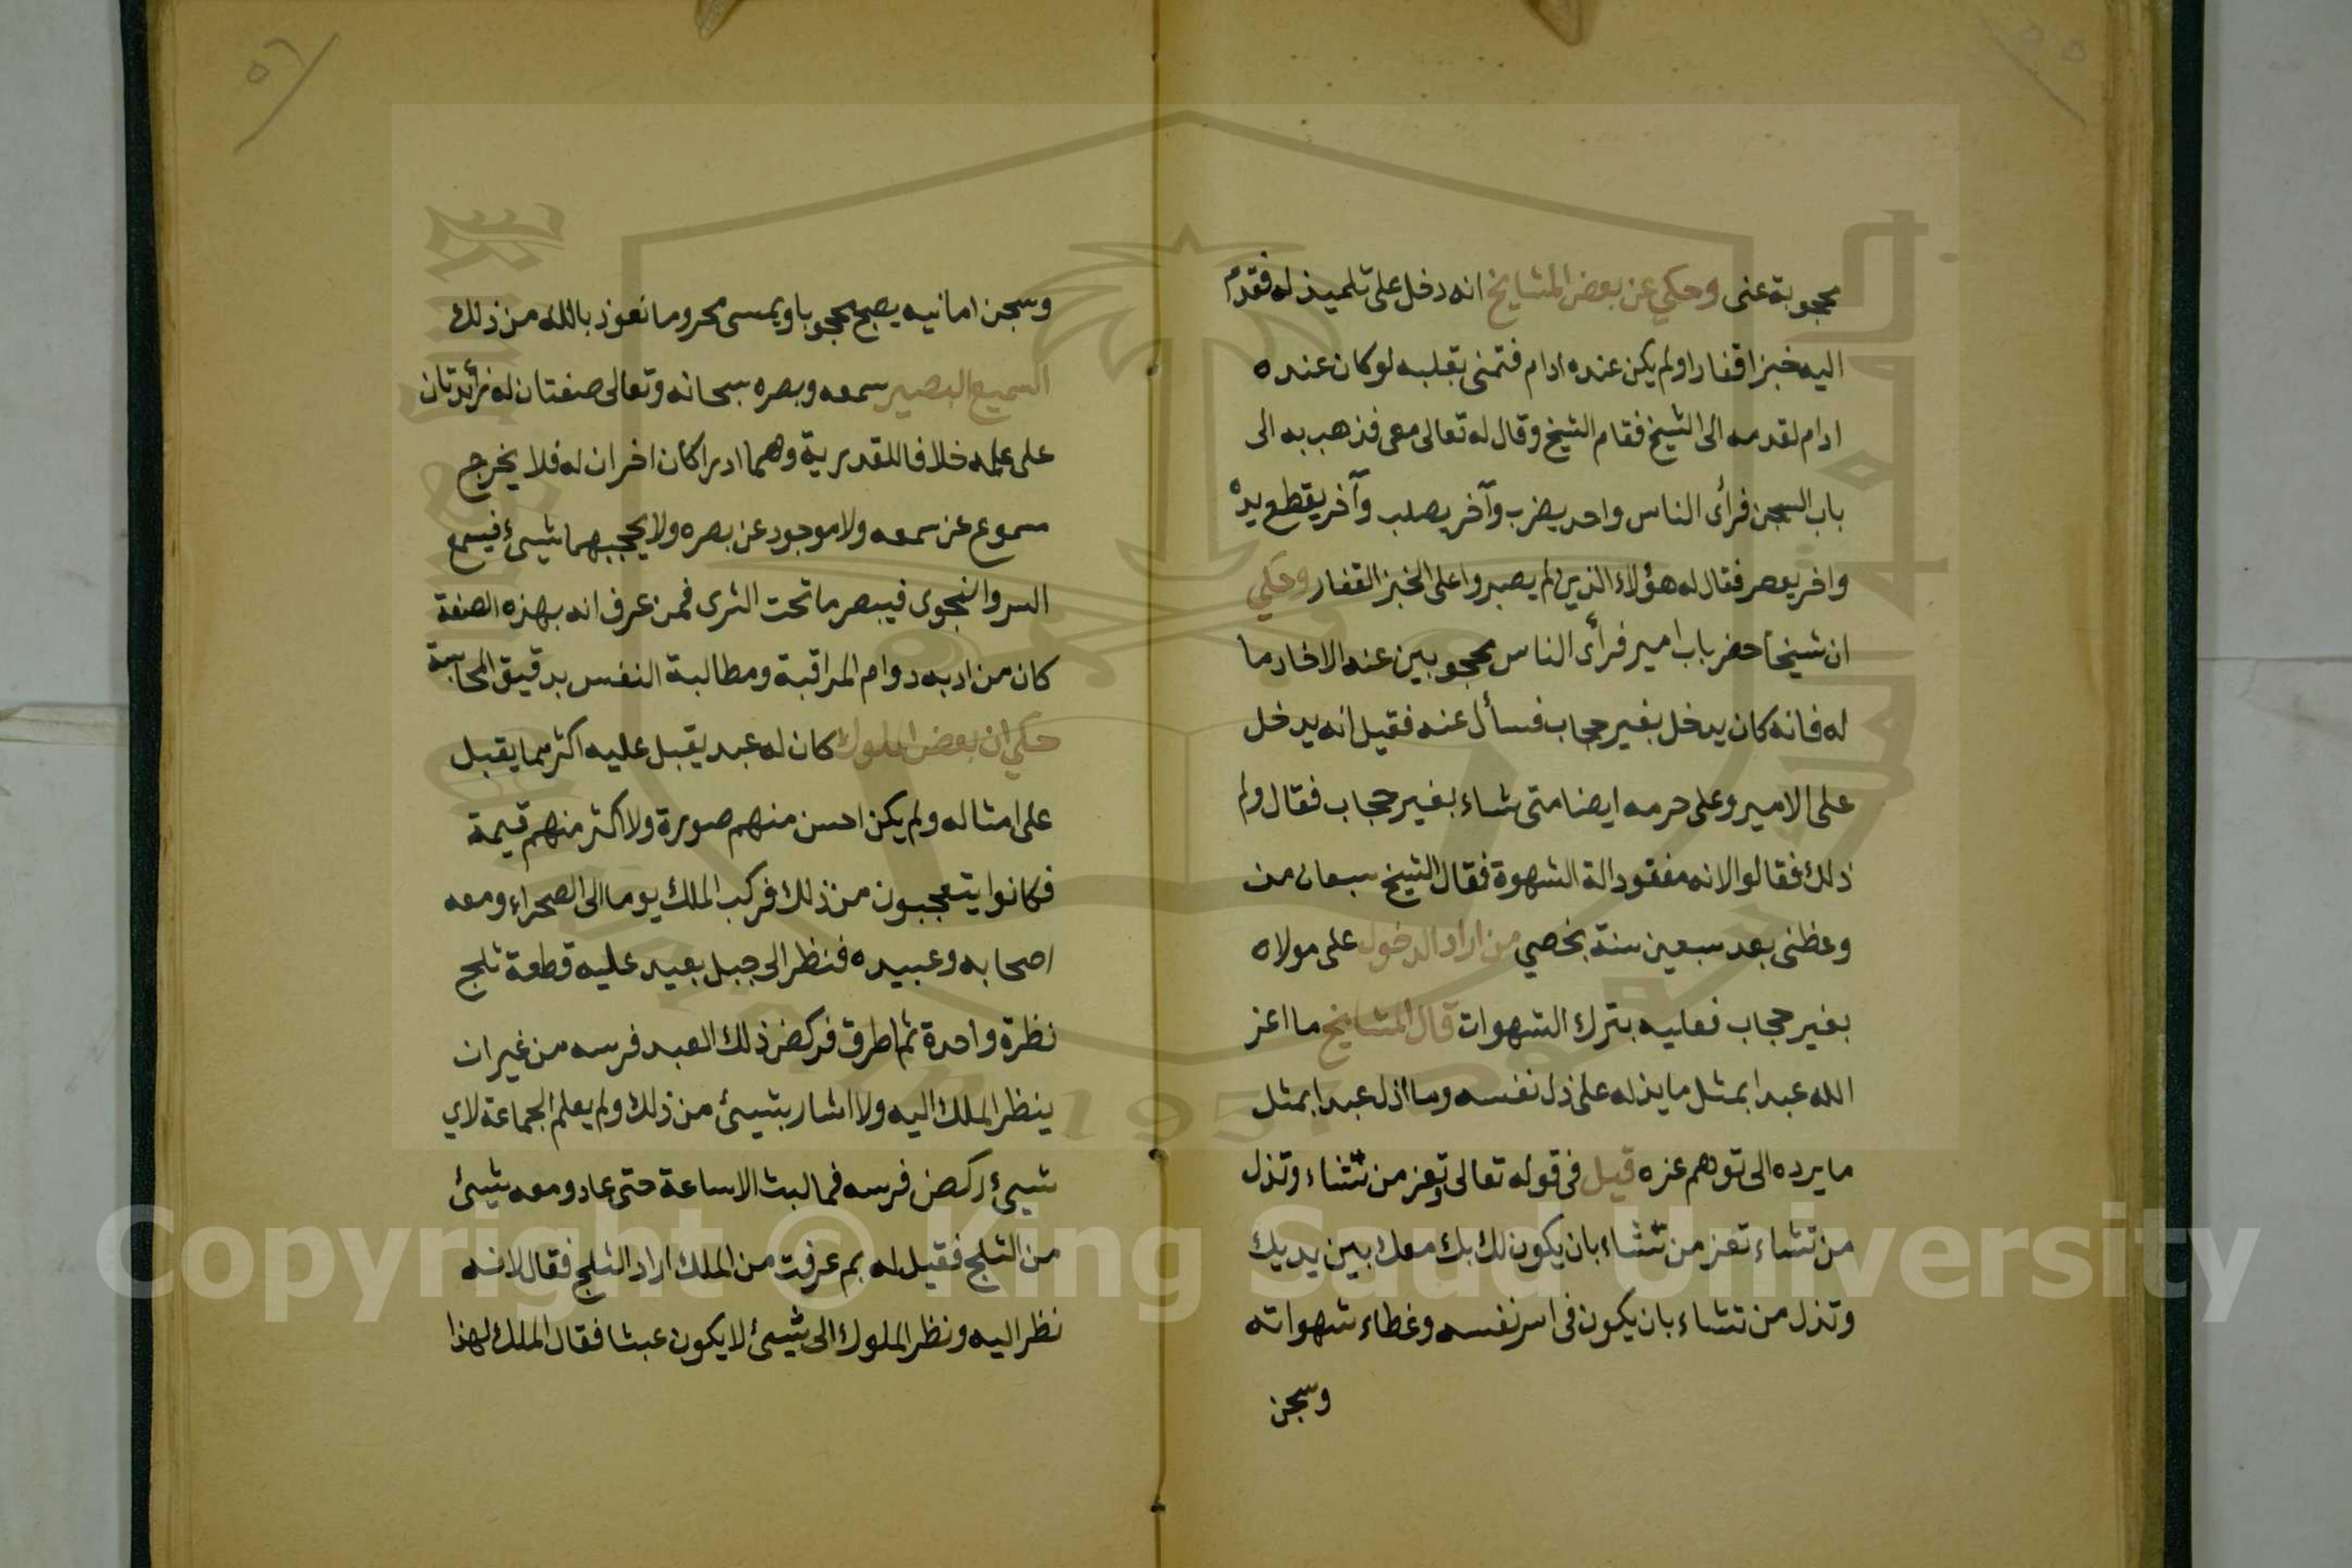 ٥٥
محجوبة عنى وحكي عن بعض المشايخ انه دخل على تلميذ له فقدم
اليه خبزا قفارا ولم يكن عنده ادام فتمنى بقلبه لو كان عنده
ادام لقدمه الى الشيخ فقام الشيخ وقال له تعالى معى فذهب به الى
باب السجن فرأى الناس واحد يضرب وآخر يصلب وآخر يقطع يده
واخر يعصر فقال له هؤلاء الذين لم يصبروا على الخبز القفار وحكي
ان شيخا حضر باب امير فرأى الناس محجوبين عنه الا خادما
له فانه كان يدخل بغير حجاب فسأل عنه فقيل انه يدخل
على الامير وعلى حرمه ايضا متى شاء بغير حجاب فقال ولم
ذلك فقالوا لانه مفقود الة الشهوة فقال الشيخ سبعان من
وعظنى بعد سبعين سنة بخصي من اراد الدخول على مولاه
بغير حجاب فعليه بترك الشهوات قال المشايخ ما اعز
الله عبدا بمثل ما يذله على ذل نفسه وما اذل عبدا بمثل
ما يرده الى توهم عزه قيل فى قوله تعالى وتعز من تشاء وتذل
من تشاء تعز من تشاء بان يكون لك بك معك بين يديك
وتذل من تشاء بان يكون فى اسر نفسه وغطاء شهواته
وسجن
٥٦
وسجن امانيه يصبح محجوبا ويمسى محروما نعوذ بالله من ذلك
السميع البصير سمعه وبصره سبحانه وتعالى صفتان له زائدتان
على علمه خلافا للقدرية وهما ادراكان اخران له فلا يخرج
مسموع عن سمعه ولا موجود عن بصره ولا يحجبهما شيئ فيسمع
السر والنجوى فيبصر ما تحت الثرى فمن عرف انه بهذه الصفة
كان من ادبه دوام المراقبة ومطالبة النفس بدقيق المحاسبة
حكي ان بعض الملوك كان له عبد يقبل عليه اكثر مما يقبل
على امثاله ولم يكن احسن منهم صورة ولا اكثر منهم قيمة
فكانوا يتعجبون من ذلك فركب الملك يوما الى الصحراء ومعه
اصحابه وعبيده فنظر الى جبل بعيد عليه قطعة ثلج
نظرة واحدة ثم اطرق فركض ذلك العبد فرسه من غير ان
ينظر الملك اليه ولا اشار بشيئ من ذلك ولم يعلم الجماعة لاي
شيئ ركض فرسه فما لبث الا ساعة حتى عاد ومعه شيئ
من الثلج فقيل له بم عرفت من الملك اراد الثلج فقال لانه
نظر اليه ونظر الملوك الى شيئ لا يكون عبثا فقال الملك لهذا
1957
Copyright © King Saud University